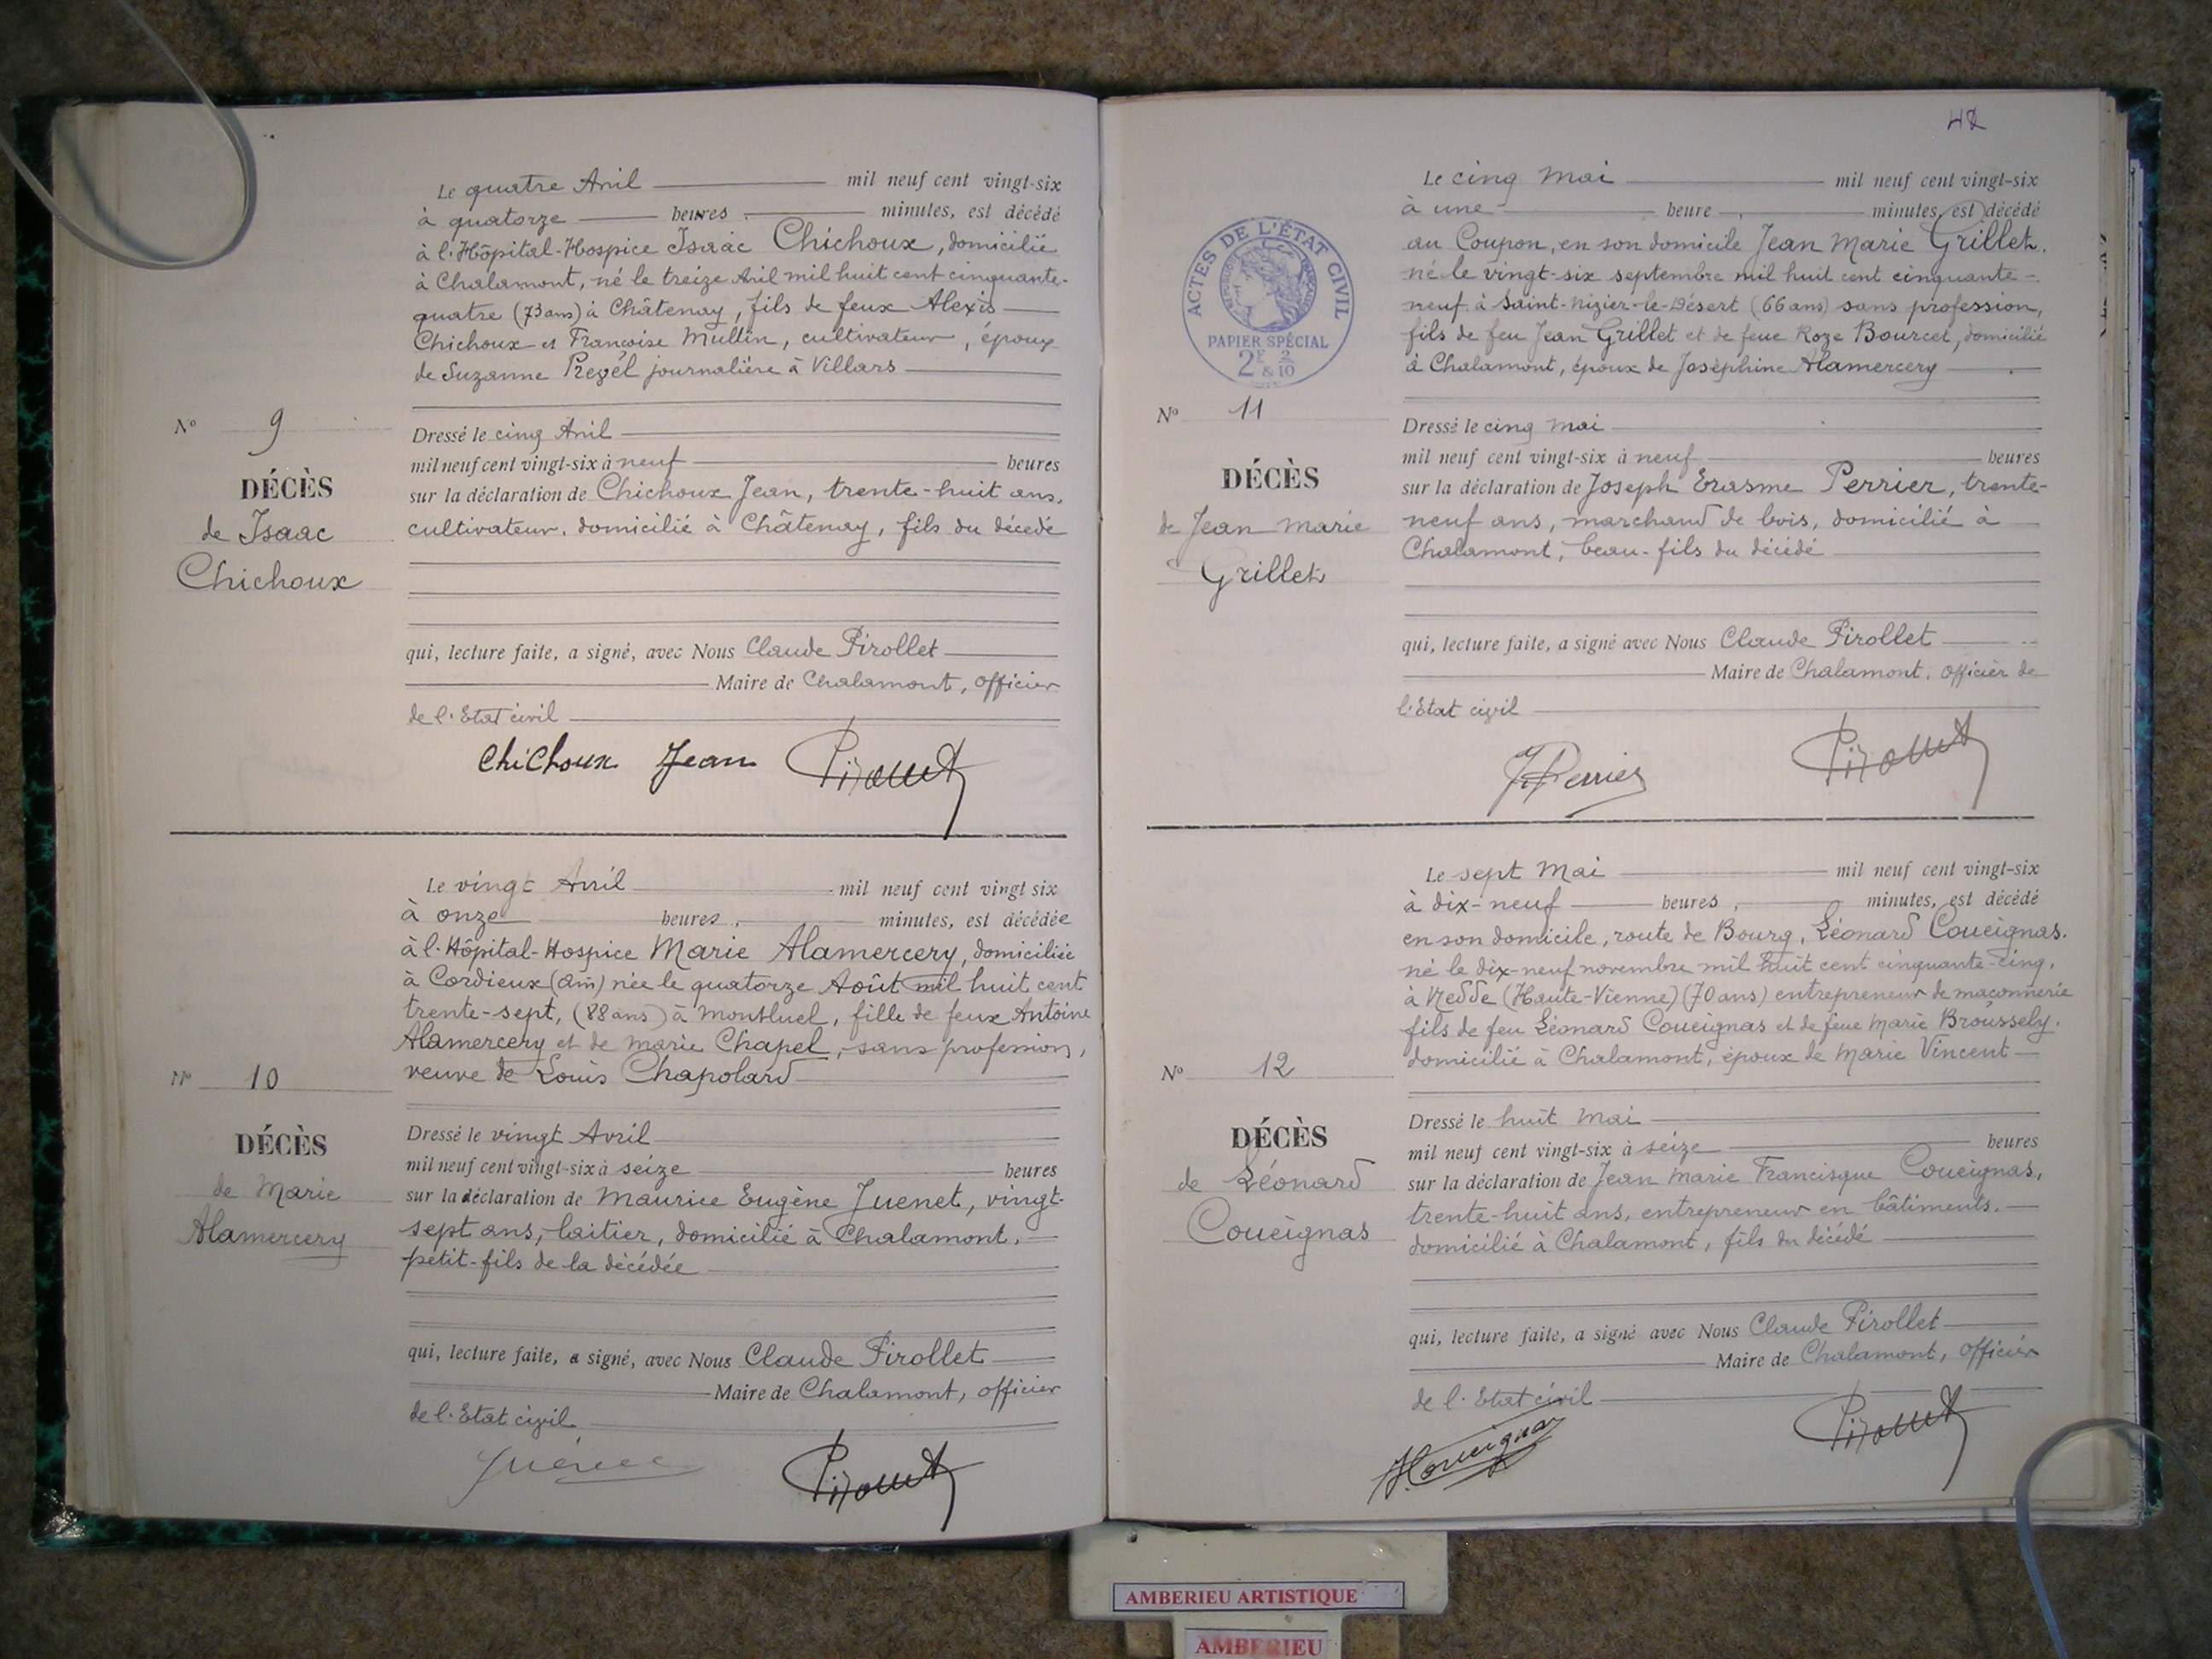 Le quatre Avril mil neuf cent vingt-six
à quatorze heures, minutes, est décédé
à l'Hôpital-Hospice Isaac Chichoux, domicilié
à Chalamont, né le treize Avril mil huit cent cinquante-
quatre (73 ans) à Châtenay, fils de feux Alexis
Chichoux et Françoise Mullin, cultivateur, époux
de Suzanne journalière à Villars
N° 9
DÉCÈS
de Isaac
Chichoux
Dressé le cinq Avril
mil neuf cent vingt-six à neuf heures
sur la déclaration de Chichoux Jean, trente-huit ans,
cultivateur, domicilié à Châtenay, fils du décédé
qui, lecture faite, a signé, avec Nous Claude Pirollet
Maire de Chalamont, officier
de l'Etat civil
Chichoux Jean Pirollet
Le vingt Avril mil neuf cent vingt six
à onze heures, minutes, est décédée
à l'Hôpital-Hospice Marie Alamercery, domiciliée
à Cordieux (Ain) née le quatorze Août mil huit cent
trente-sept, (88 ans) à Montluel, fille de feux Antoine
Alamercery et de Marie Chapel, sans profession,
veuve de Louis Chapolard
N° 10
DÉCÈS
de Marie
Alamercery
Dressé le vingt Avril
mil neuf cent vingt-six à seize heures
sur la déclaration de Maurice Eugène Juenet, vingt-
sept ans, laitier, domicilié à Chalamont,
petit-fils de la décédée
qui, lecture faite, a signé, avec Nous Claude Pirollet
Maire de Chalamont, officier
de l'Etat civil
Juenet Pirollet
42
Le cinq Mai mil neuf cent vingt-six
à une heure, minutes, est décédé
au Coupon, en son domicile Jean Marie Grillet,
né le vingt-six septembre mil huit cent cinquante-
neuf à Saint-Nizier-le-Désert (66 ans) sans profession,
fils de feu Jean Grillet et de feue Roze Bourcet, domicilié
à Chalamont, époux de Joséphine Alamercery
ACTES DE L'ÉTAT CIVIL
PAPIER SPÉCIAL
2F & 2/10
N° 11
DÉCÈS
de Jean Marie
Grillet
Dressé le cinq Mai
mil neuf cent vingt-six à neuf heures
sur la déclaration de Joseph Erasme Perrier, trente-
neuf ans, marchand de bois, domicilié à
Chalamont, beau-fils du décédé
qui, lecture faite, a signé avec Nous Claude Pirollet
Maire de Chalamont, officier de
l'Etat civil
Perrier Pirollet
Le sept Mai mil neuf cent vingt-six
à dix-neuf heures, minutes, est décédé
en son domicile, route de Bourg, Léonard Coueignas,
né le dix-neuf novembre mil huit cent cinquante-cinq,
à (Haute-Vienne) (70 ans) entrepreneur de maçonnerie
fils de feu Léonard Coueignas et de feue Marie Broussely,
domicilié à Chalamont, époux de Marie Vincent
N° 12
DÉCÈS
de Léonard
Coueignas
Dressé le huit Mai
mil neuf cent vingt-six à seize heures
sur la déclaration de Jean Marie Francisque Coueignas,
trente-huit ans, entrepreneur en bâtiments,
domicilié à Chalamont, fils du décédé
qui, lecture faite, a signé avec Nous Claude Pirollet
Maire de Chalamont, officier
de l'Etat civil
Coueignas Pirollet
AMBERIEU ARTISTIQUE
AMBERIEU